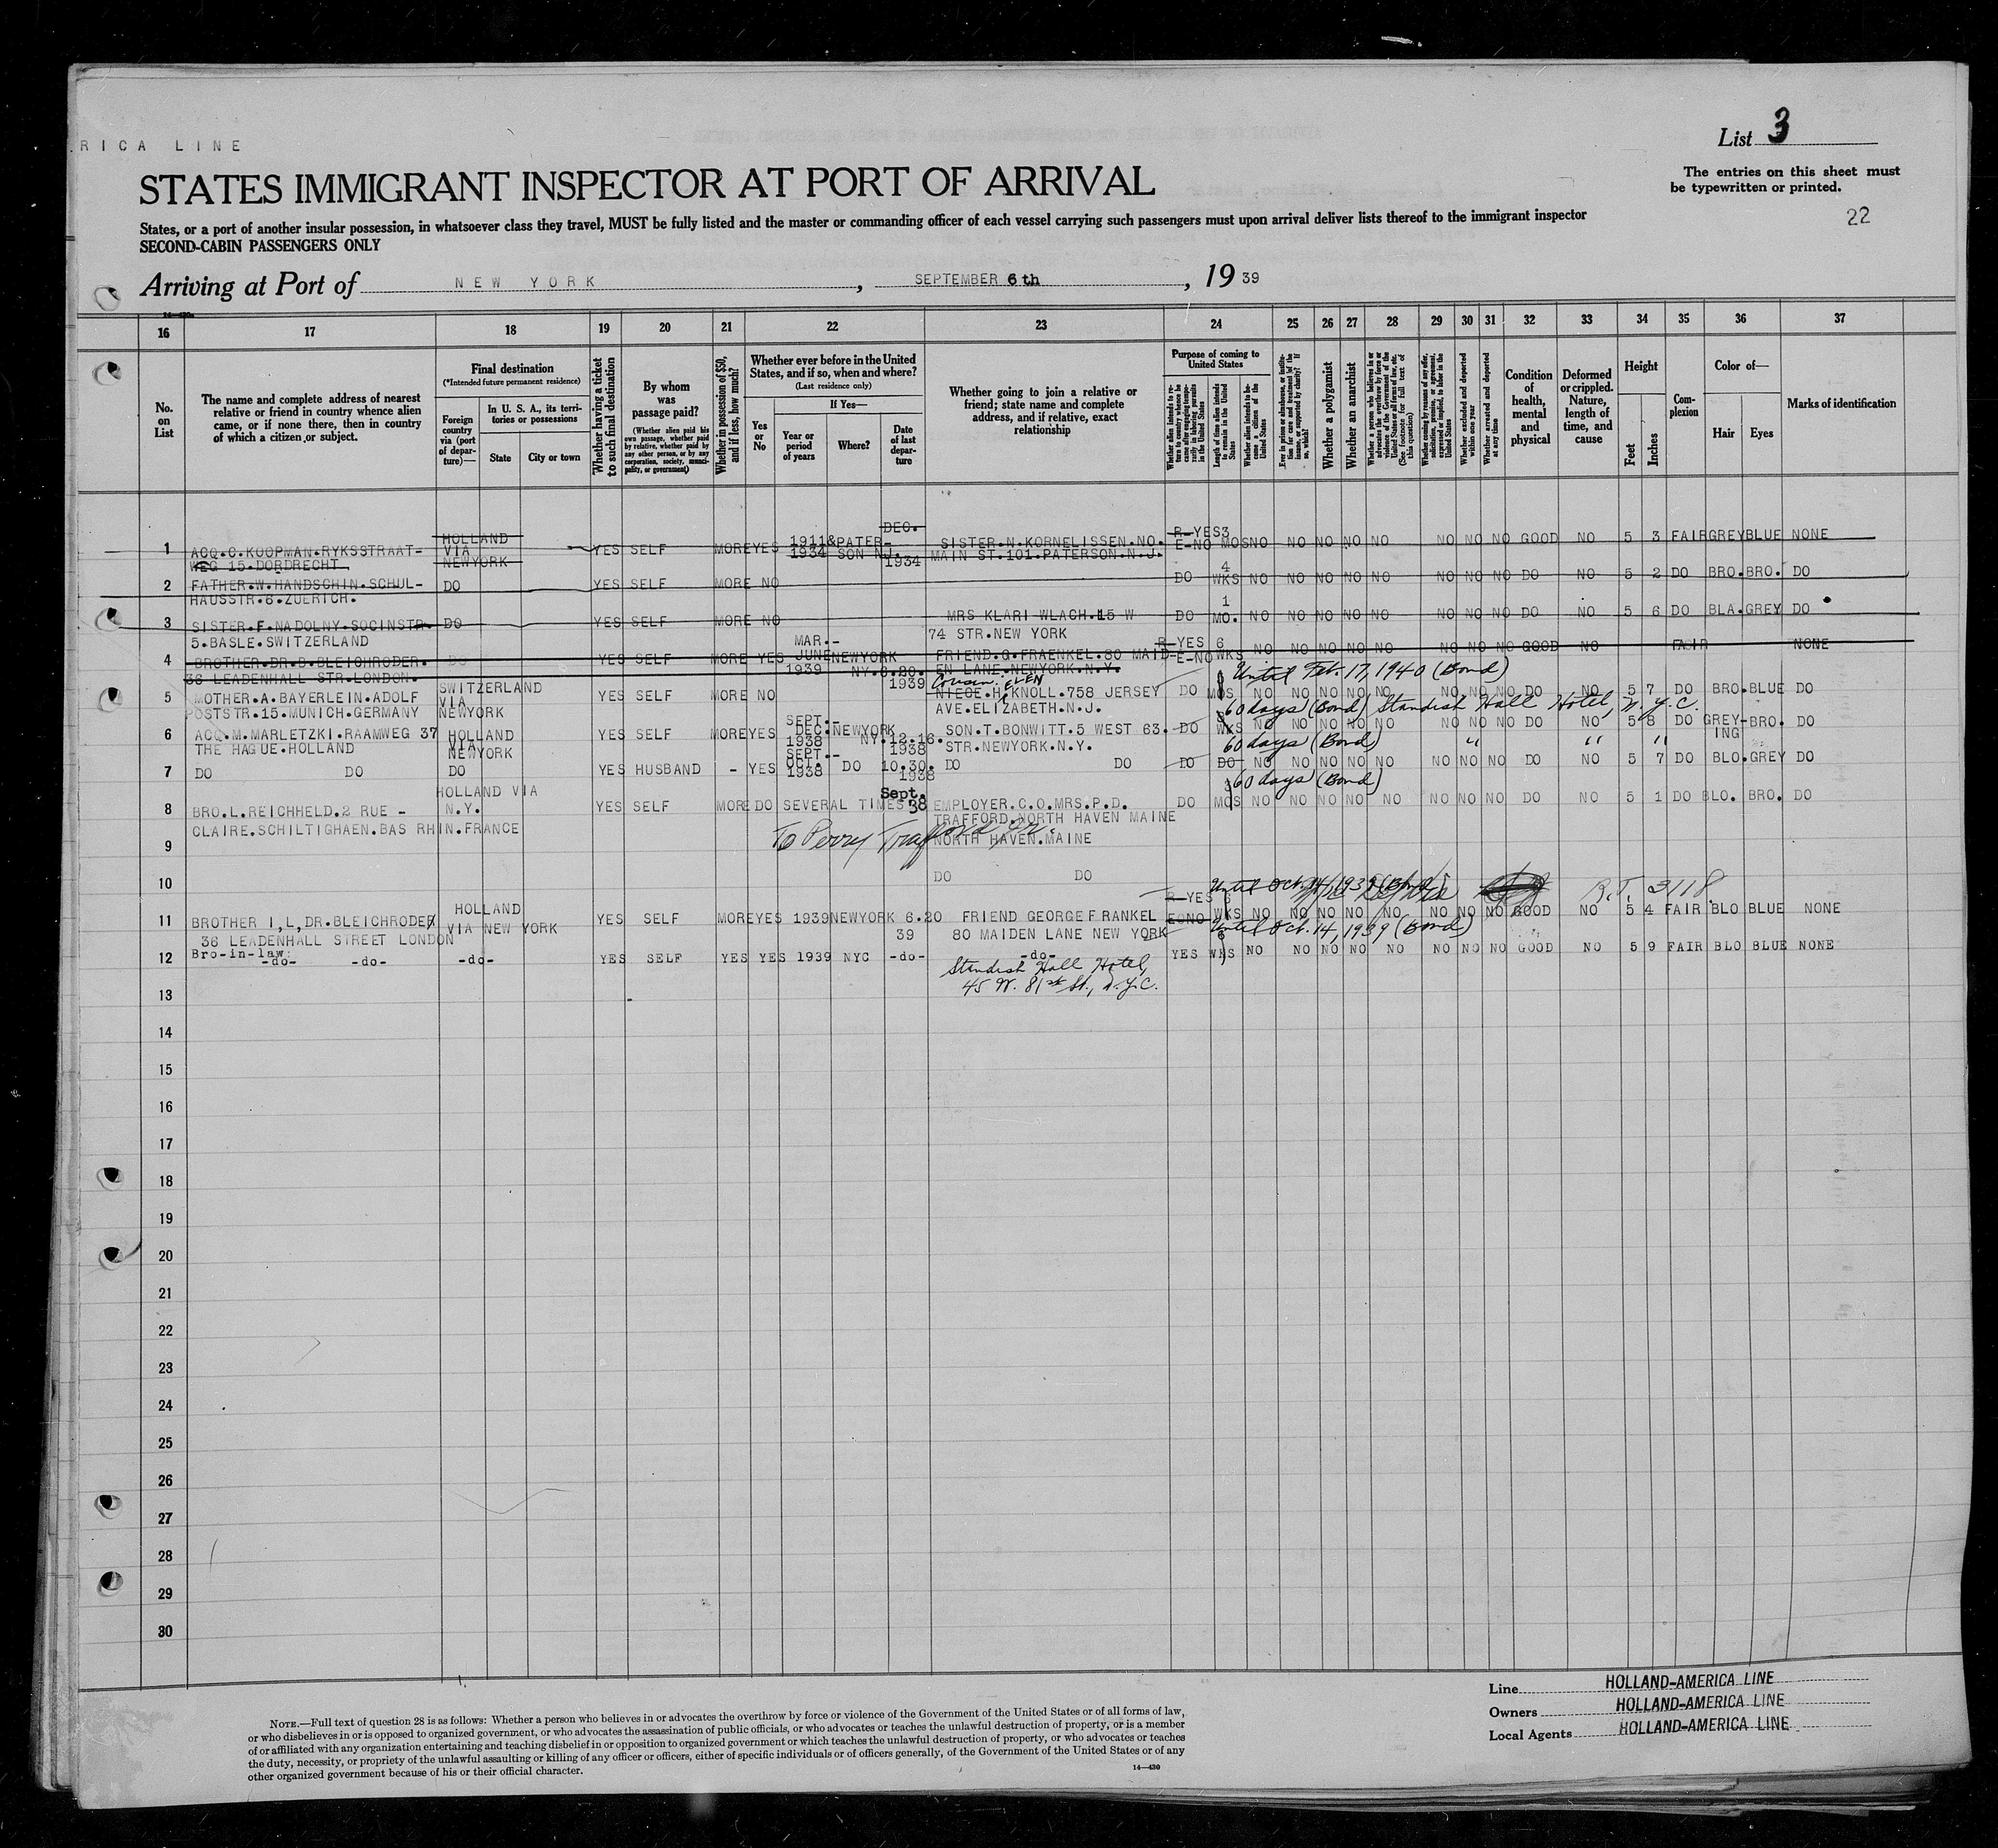 RICA LINE
List 3
STATES IMMIGRANT INSPECTOR AT PORT OF ARRIVAL
The entries on this sheet must
be typewritten or printed.
States, or a port of another insular possession, in whatsoever class they travel, MUST be fully listed and the master or commanding officer of each vessel carrying such passengers must upon arrival deliver lists thereof to the immigrant inspector
22
SECOND-CABIN PASSENGERS ONLY
Arriving at Port of NEW YORK , SEPTEMBER 6th , 19 39
16 17 18 19 20 21 22 23 24 25 26 27 28 29 30 31 32 33 34 35 36 37
No. on List
The name and complete address of nearest
relative or friend in country whence alien
came, or if none there, then in country
of which a citizen or subject.
Final destination
(*Intended future permanent residence)
Foreign country via (port of departure)—
In U. S. A., its territories or possessions
State City or town
Whether having a ticket to such final destination
By whom was passage paid?
(Whether alien paid his own passage, whether paid by relative, whether paid by any other person, or by any corporation, society, municipality, or government)
Whether in possession of $50, and if less, how much?
Whether ever before in the United States, and if so, when and where?
(Last residence only)
Yes or No
If Yes—
Year or period of years
Where?
Date of last departure
Whether going to join a relative or
friend; state name and complete
address, and if relative, exact
relationship
Purpose of coming to United States
Length of time alien intends to remain in the United States
Whether alien intends to become a citizen of the United States
Whether a polygamist
Whether an anarchist
Whether excluded and deported within one year
Whether arrested and deported at any time
Condition of health, mental and physical
Deformed or crippled. Nature, length of time, and cause
Height
Feet Inches
Complexion
Color of—
Hair Eyes
Marks of identification
1 ACQ.C.KOOPMAN.RYKSSTRAAT- HOLLAND VIA NEWYORK YES SELF MORE YES 1911& 1934 PATER- SON N.J. DEC. 1934 SISTER.N.KORNELISSEN.NO. R-YES 3 E-NO MOS NO NO NO NO NO NO NO NO GOOD NO 5 3 FAIR GREY BLUE NONE
WEG 15.DORDRECHT MAIN ST.101.PATERSON.N.J.
2 FATHER.W.HANDSCHIN.SCHUL- DO YES SELF MORE NO DO 4 WKS NO NO NO NO NO NO NO NO DO NO 5 2 DO BRO. BRO. DO
HAUSSTR.6.ZUERICH.
3 SISTER.F.NADOLNY.SOCINSTR. DO YES SELF MORE NO MRS KLARI WLACH.15 W DO 1 MO. NO NO NO NO NO NO NO NO DO NO 5 6 DO BLA. GREY DO
5.BASLE.SWITZERLAND 74 STR.NEW YORK
4 BROTHER.DR.B.BLEICHRODER. DO YES SELF MORE YES MAR.- JUNE 1939 NEWYORK NY.6.20. 1939 FRIEND.G.FRAENKEL.80 MAID- R-YES 6 E-NO WKS NO NO NO NO NO NO NO NO GOOD NO FAIR NONE
36 LEADENHALL STR.LONDON. EN LANE.NEWYORK.N.Y.
Until Feb. 17, 1940 (Bond)
Cousin
5 MOTHER.A.BAYERLEIN.ADOLF SWITZERLAND VIA NEWYORK YES SELF MORE NO NIECE.H.KNOLL.758 JERSEY DO MOS NO NO NO NO NO NO NO NO DO NO 5 7 DO BRO. BLUE DO
POSTSTR.15.MUNICH.GERMANY AVE.ELIZABETH.N.J.
60 days (Bond) Standish Hall Hotel, N.Y.C.
6 ACQ.M.MARLETZKI.RAAMWEG 37 HOLLAND VIA NEWYORK YES SELF MORE YES SEPT.- DEC. 1938 NEWYORK NY.12.16. 1938 SON.T.BONWITT.5 WEST 63. DO WKS NO NO NO NO NO NO NO NO DO NO 5 8 DO GREY- ING BRO. DO
THE HAGUE.HOLLAND STR.NEWYORK.N.Y.
60 days (Bond) " " "
7 DO DO DO YES HUSBAND - YES SEPT.- OCT. 1938 DO 10.30. 1938 DO DO DO DO NO NO NO NO NO NO NO NO DO NO 5 7 DO BLO. GREY DO
60 days (Bond)
8 BRO.L.REICHHELD.2 RUE - HOLLAND VIA N.Y. YES SELF MORE DO SEVERAL TIMES Sept. 38 EMPLOYER.C.O.MRS.P.D. DO MOS NO NO NO NO NO NO NO NO DO NO 5 1 DO BLO. BRO. DO
CLAIRE.SCHILTIGHAEN.BAS RHIN.FRANCE TRAFFORD.NORTH HAVEN MAINE
9 To Perry Trafford Jr. NORTH HAVEN.MAINE
10 DO DO
Until Oct. 14, 1939 (Bond) R.T. 3118
11 BROTHER I,L,DR.BLEICHRODER HOLLAND VIA NEW YORK YES SELF MORE YES 1939 NEWYORK 6.20 39 FRIEND GEORGE FRANKEL R-YES 6 EONO WKS NO NO NO NO NO NO NO NO GOOD NO 5 4 FAIR BLO BLUE NONE
36 LEADENHALL STREET LONDON 80 MAIDEN LANE NEW YORK
Until Oct. 14, 1939 (Bond)
12 Bro-in-law -do- -do- -do- YES SELF YES YES 1939 NYC -do- -do- YES 6 WKS NO NO NO NO NO NO NO NO GOOD NO 5 9 FAIR BLO BLUE NONE
Standish Hall Hotel,
45 W. 81st St., N.Y.C.
13
14
15
16
17
18
19
20
21
22
23
24
25
26
27
28
29
30
Line HOLLAND-AMERICA LINE
Owners HOLLAND-AMERICA LINE
Local Agents HOLLAND-AMERICA LINE
NOTE.—Full text of question 28 is as follows: Whether a person who believes in or advocates the overthrow by force or violence of the Government of the United States or of all forms of law,
or who disbelieves in or is opposed to organized government, or who advocates the assassination of public officials, or who advocates or teaches the unlawful destruction of property, or is a member
of or affiliated with any organization entertaining and teaching disbelief in or opposition to organized government or which teaches the unlawful destruction of property, or who advocates or teaches
the duty, necessity, or propriety of the unlawful assaulting or killing of any officer or officers, either of specific individuals or of officers generally, of the Government of the United States or of any
other organized government because of his or their official character.
14—430